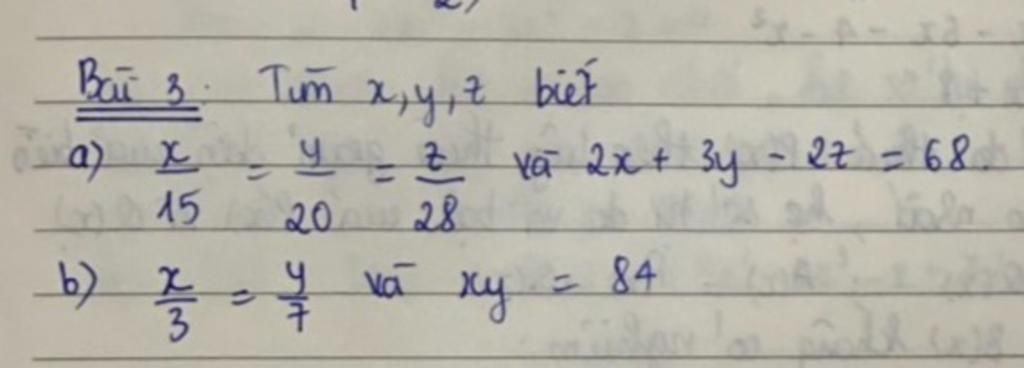 Bài 3. Tìm x, y, z biết
a) x/15 = y/20 = z/28 và 2x + 3y - 2z = 68.
b) x/3 = y/7 và xy = 84